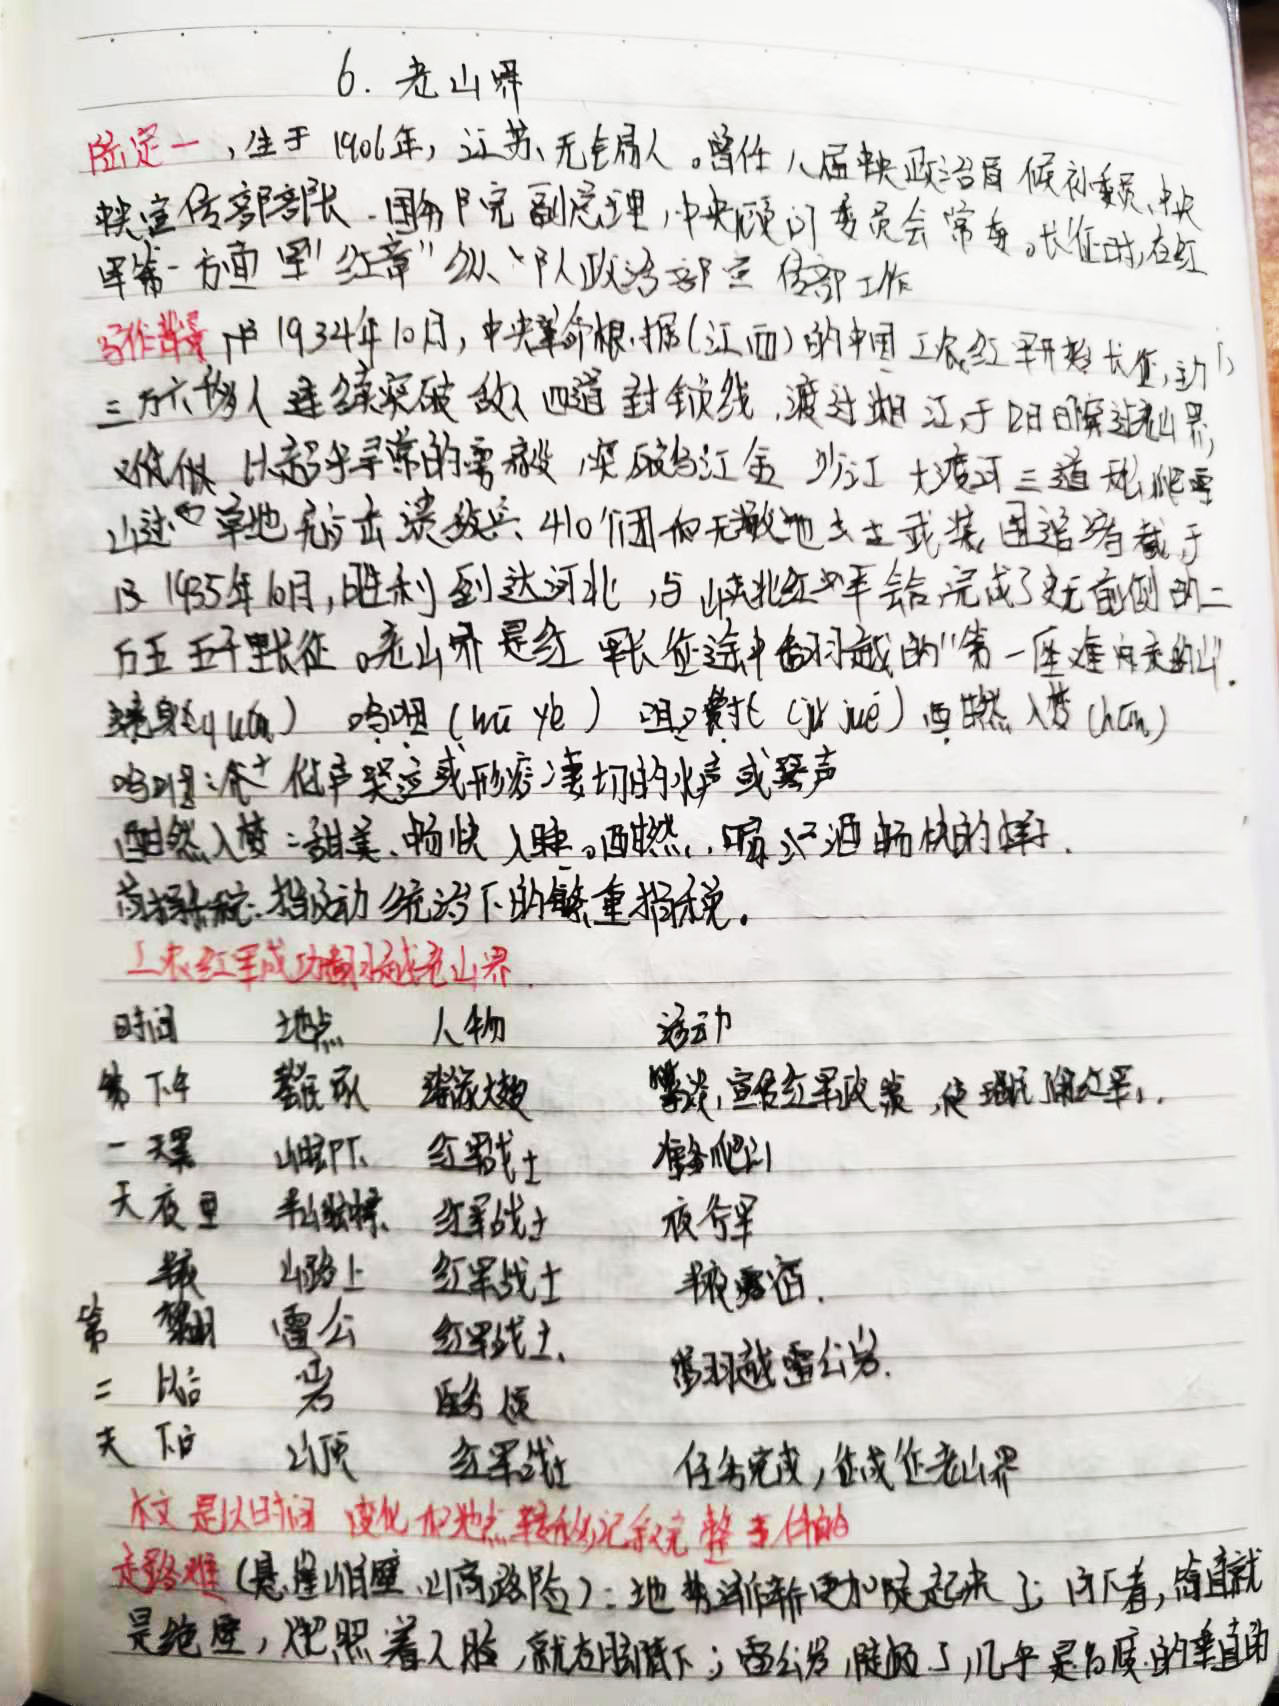 6. 老山界
陆定一，生于1906年，江苏、无锡人。曾任八届中央政治局候补委员、中央
中央宣传部部长、国务院副总理，中央顾问委员会常委。长征时，在红
军第一方面军"红章"纵队政治部宣传部工作
写作背景 1934年10月，中央革命根据(江西)的中国工农红军开始长征，
三万六千多人连续突破敌人四道封锁线，渡过湘江，于 突过老山界，
以超乎寻常的 突破乌江金沙江大渡河三道 爬雪
山过草地 击溃敌兵、410个团和无数地方土武装，围追堵截于
1935年10月，胜利到达河北，与陕北红军会合，完成了史无前例的二
万五 五千里长征。老山界是红军长征途中翻越的"第一座难走的山".
(quán) 呜咽(wū yè) 咀嚼(jǔ jué) 酣然入梦(hān)
呜咽： 低声哭泣或形容凄切的水声或琴声
酣然入梦：甜美、畅快入睡。酣然，喝酒畅快的样子.
苛捐杂税：指反动统治下的繁重捐税。
工农红军成功翻越老山界.
时间 地点 人物 活动
第 下午 瑶民家 瑶族大嫂 攀谈，宣传红军政策，使瑶民了解红军.
一 天黑 山脚下 红军战士 准备爬山
天 夜里 半山 红军战士 夜行军
半夜 山路上 红军战士 半夜露宿.
第 黎明 雷公 红军战士、 翻越雷公岩.
二 以后 岩 医务员
天 下午 山顶 红军战士 任务完成，征成征老山界
本文是以时间变化和地点转移为记叙完整事件的
走路难(悬崖峭壁、山高路险)：地势渐渐更加陡起来了；向下看，简直就
是绝壁，火把照着人脸，就在脚底下；雷公岩，陡极了，几乎是九十度的垂直的